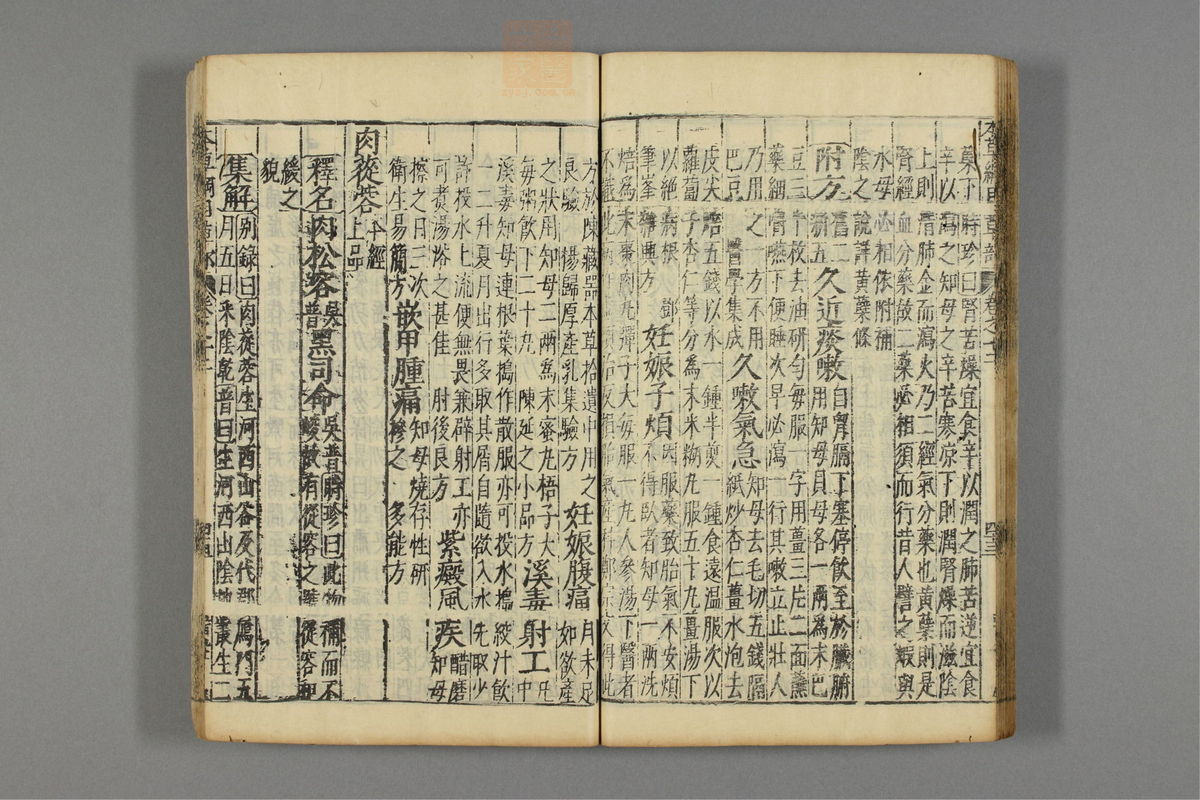 藥子 時珍曰腎苦燥宜食辛以潤之肺苦逆宜食
辛以瀉之知母之辛苦寒凉下則潤腎燥而滋陰
上則清肺金而瀉火乃二經氣分藥也黃蘗則是
腎經血分藥故二藥必相須而行昔人譬之蝦與
水母必相依附補
陰之說詳黃蘗條
附方 舊二新五 久近痰嗽 自胷膈下塞停飲至於臟腑用知母貝母各一兩為末巴
豆三十枚去油研勻每服一字用薑三片二面蘸
藥細嚼嚥下便睡次早必瀉一行其嗽立止壯人
乃用之一方不用
巴豆 醫學集成 久嗽氣急 知母去毛切五錢隔紙炒杏仁薑水泡去
皮尖焙五錢以水一鍾半煎一鍾食遠温服次以
蘿蔔子杏仁等分為末米糊丸服五十丸薑湯下
以絕病根 鄧筆峯雜興方 妊娠子煩 因服藥致胎氣不安煩不得臥者知母一兩洗
焙為末棗肉丸彈子大每服一丸人參湯下醫者
方於陳藏器本草拾遺中用之
良驗 楊歸厚產乳集驗方 妊娠腹痛 月未足如欲產
之狀用知母二兩為末蜜丸梧子大
每粥飲下二十丸 陳延之小品方 溪毒射工 凡中
溪毒知母連根葉搗作散服亦可投水搗絞汁飲
一二升夏月出行多取其屑自隨欲入水先取少
許投水上流便無畏兼辟射工亦
可煑湯浴之甚佳 肘後良方 紫癜風疾 醋磨知母
擦之日三次
衛生易簡方 嵌甲腫痛 知母燒存性研摻之 多能方
肉蓯蓉 本經上品
釋名 肉松容 吳普 黑司命 吳普 時珍曰此物補而不峻故有從容之號從容和
緩之
貌
集解 别錄曰肉蓯蓉生河西山谷及代郡鴈門五
月五日采陰乾普曰生河西山陰地叢生二